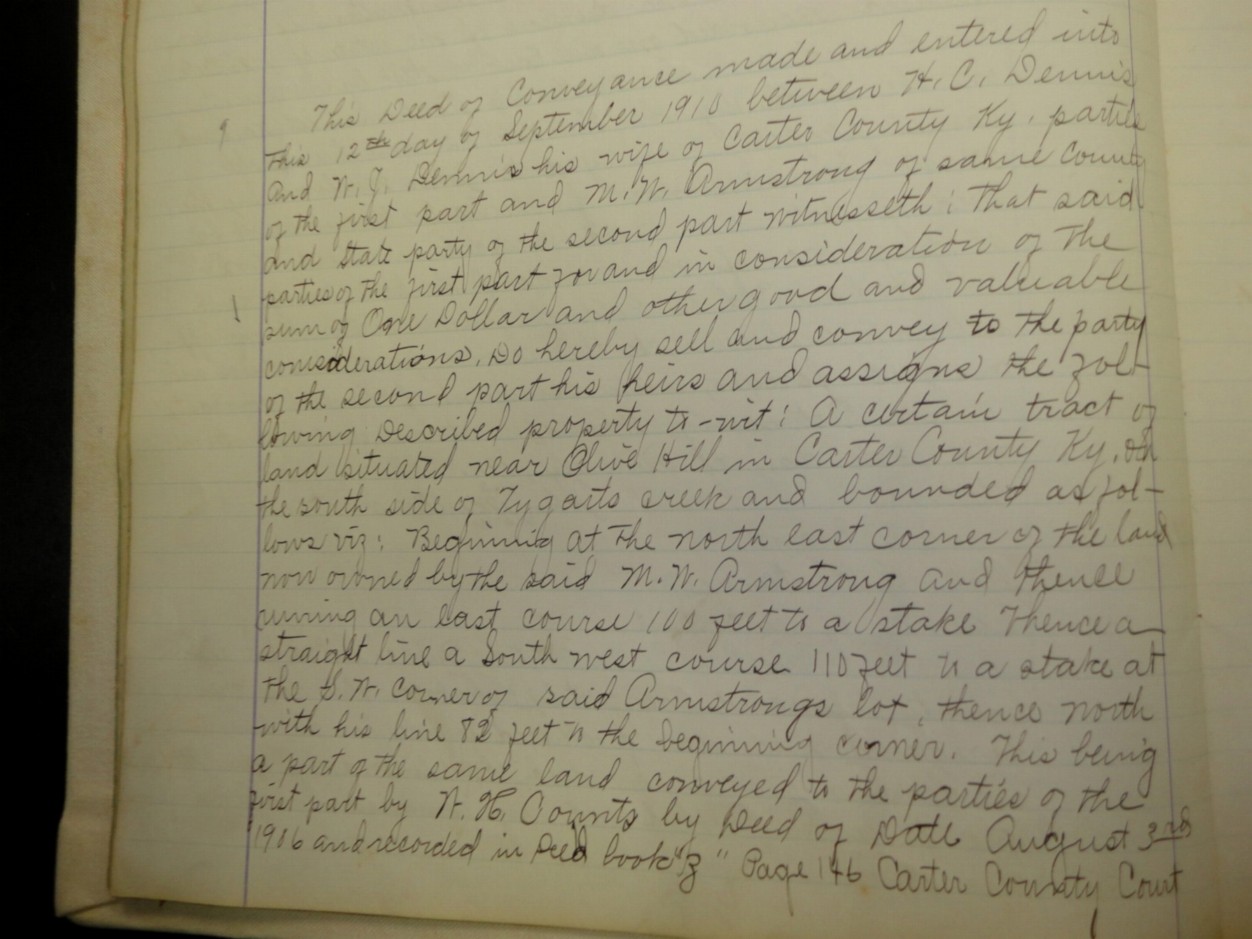 This Deed of Conveyance made and entered into
This 12th day of September 1910 between H. C. Dennis
And N. J. Dennis his wife of Carter County Ky. parties
of the first part and M. W. Armstrong of same County
and State party of the second part witnesseth: That said
parties of the first part for and in consideration of the
sum of One Dollar and other good and valuable
considerations. Do hereby sell and convey to the party
of the second part his heirs and assigns the fol-
lowing Described property to-wit: A certain tract of
land situated near Olive Hill in Carter County Ky. on
the south side of Tygarts creek and bounded as fol-
lows viz: Beginning at the north east corner of the land
now owned by the said M. W. Armstrong and thence
runing an East course 100 feet to a stake Thence a
straight line a South west course 110 feet to a stake at
the S. W. Corner of said Armstrongs lot, thence North
with his line 82 feet to the beginning corner. This being
a part of the same land conveyed to the parties of the
first part by W. H. Counts by Deed of Date August 3rd
1906 and recorded in Deed book "Z" Page 146 Carter County Court